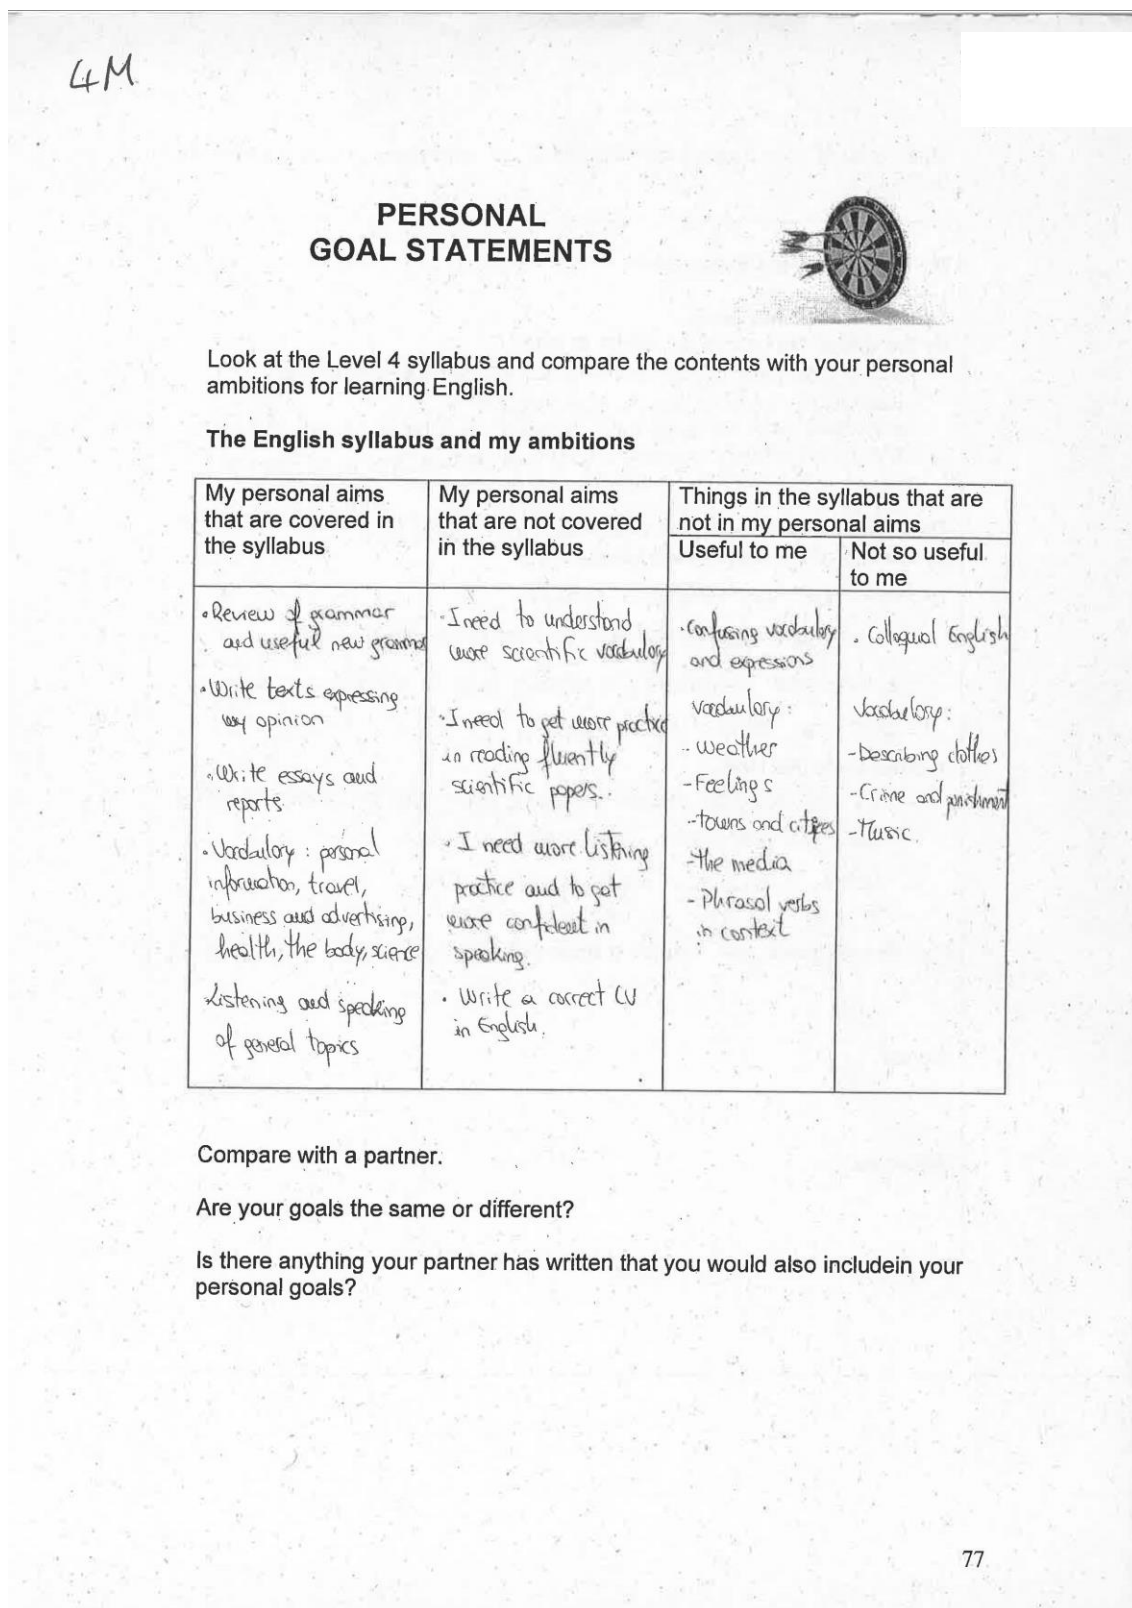 4M
PERSONAL
GOAL STATEMENTS
Look at the Level 4 syllabus and compare the contents with your personal
ambitions for learning English.
The English syllabus and my ambitions
My personal aims
that are covered in
the syllabus
My personal aims
that are not covered
in the syllabus
Things in the syllabus that are
not in my personal aims
Useful to me
Not so useful
to me
• Review of grammar
and useful new grammar
• Write texts expressing
my opinion
• Write essays and
reports
• Vocabulary : personal
information, travel,
business and advertising,
health, the body, science
Listening and speaking
of general topics
• I need to understand
more scientific vocabulary
• I need to get more practice
in reading fluently
scientific papers..
• I need more listening
practice and to get
more confident in
speaking.
• Write a correct CV
in English.
• Confusing vocabulary
and expressions
Vocabulary :
- Weather
- Feelings
- towns and cities
- the media
- Phrasal verbs
in context
• Colloquial English
Vocabulary :
- Describing clothes
- Crime and punishment
- Music.
Compare with a partner.
Are your goals the same or different?
Is there anything your partner has written that you would also includein your
personal goals?
77